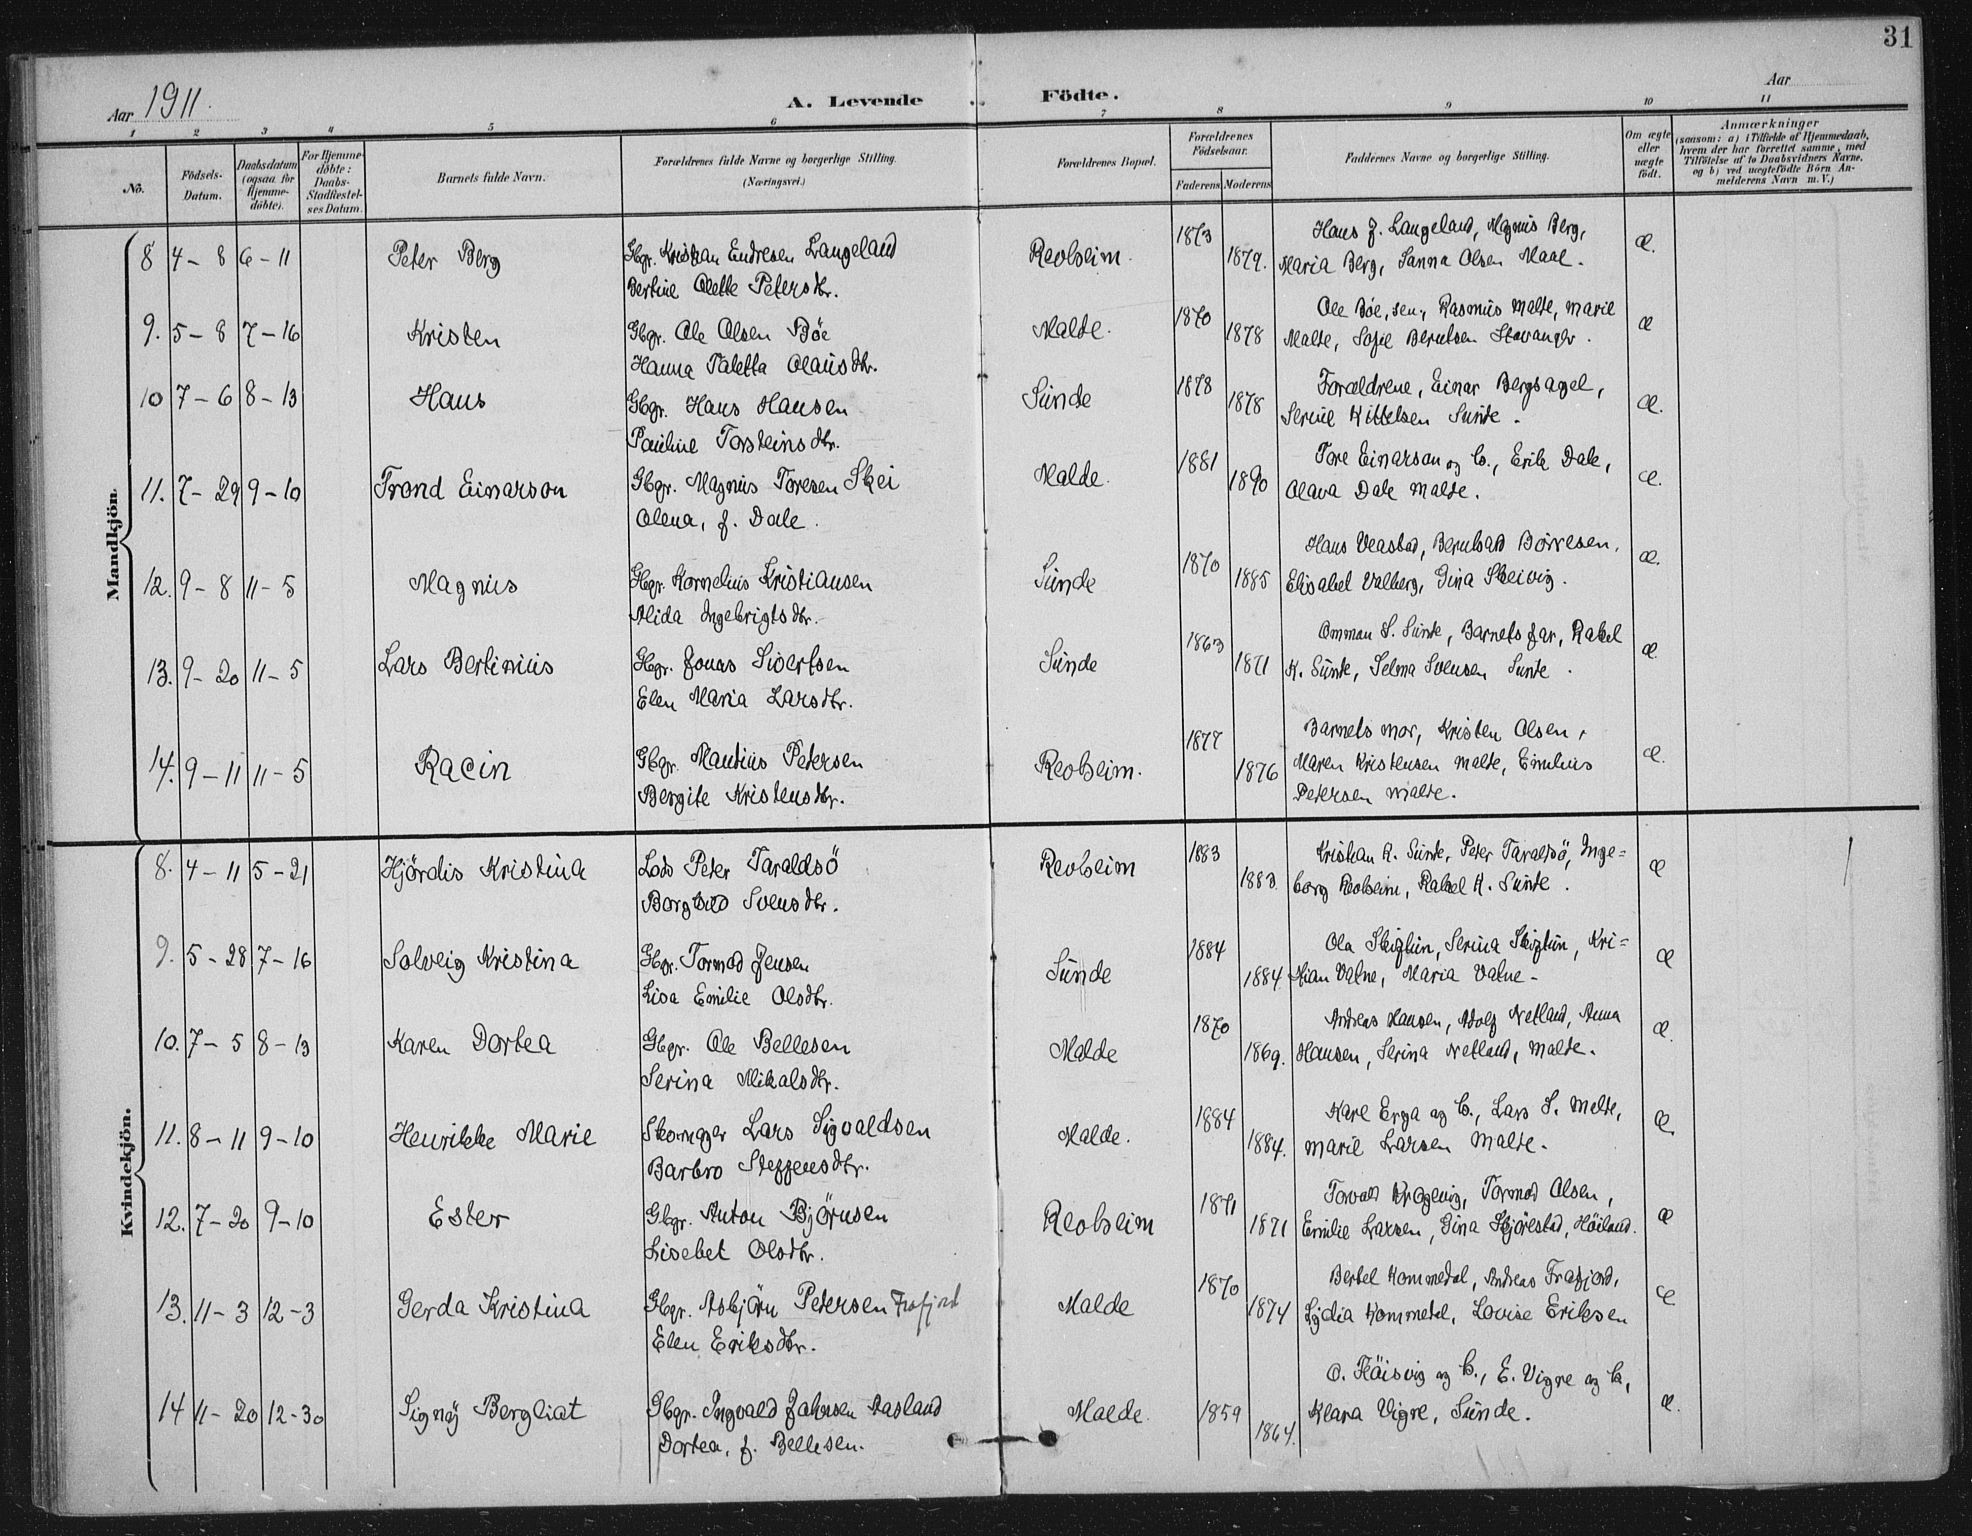 31
Aar 1911.
A. Levende Födte.
Aar
1 2 3 4 5 6 7 8 9 10 11
No.
Födsels-Datum.
Daabsdatum (ogsaa for Hjemme-döbte).
For Hjemme-döbte: Daabs-Stadfæstel-ses Datum.
Barnets fulde Navn.
Forældrenes fulde Navne og borgerlige Stilling.
(Næringsvei.)
Forældrenes Bopæl.
Forældrenes Födselsaar.
Faderens. Moderens.
Faddernes Navne og borgerlige Stilling.
Om ægte eller uægte födt.
Anmærkninger
(saasom: a) i Tilfælde af Hjemmedaab, hvem der har forrettet samme, med Tilföielse af to Daabsvidners Navne, og b) ved uægtefödte Börn An-melderens Navn m. V.)
Mandkjön.
8 4-8 6-11 Peter Berg Gbgr. Kristian Endresen Langeland Revheim. 1873 Hans J. Langeland, Magnus Berg, æ.
Bertine Olette Petersdtr. 1879. Maria Berg, Sanna Olsen Maal.
9. 5-8 7-16 Kristen Gbgr. Ole Olsen Bøe Malde. 1870 Ole Bøe, sen., Rasmus Malde, Marie æ
Hanna Taletta Olausdtr. 1878 Malde, Sofie Berntsen Stavanger.
10 7-6 8-13 Hans Gbgr. Hans Hansen Sunde 1878 Forældrene, Einar Bergsagel, æ.
Pauline Torsteinsdtr. 1878 Serine Kittelsen Sunde.
11. 7-29 9-10 Trond Einarson Gbgr. Magnus Toresen Skei Malde. 1881 Tore Einarson og h., Erik Dale, æ.
Olena, f. Dale. 1890 Olava Dale Malde.
12. 9-8 11-5 Magnus Gbgr. Kornelius Kristiansen Sunde 1870 Hans Veastad, Berntsard Børresen, æ.
Alida Ingebrigtsdtr. 1885 Elisabet Valberg, Gina Skeivig.
13. 9-20 11-5 Lars Bertinius Gbgr. Jonas Sivertsen Sunde 1863 Omman S. Sunde, Barnets far, Rakel æ
Elen Maria Larsdtr. 1871 K. Sunde, Selma Svensen Sunde.
14. 9-11 11-5 Racin Gbgr. Mautius Petersen Revheim. 1877 Barnets mor, Kristen Olsen, æ.
Bergite Kristensdtr. 1876 Maren Kristensen Malde, Emilius
Petersen Malde.
Kvindekjön.
8. 4-11 5-21 Hjördis Kristina Lods Peter Taraldsö Revheim 1883 Kristian K. Sunde, Peter Taraldsö, Inge= æ
Borghild Svensdtr. 1883. borg Revheim, Rakel K. Sunde.
9. 5-28 7-16 Solveig Kristina Gbgr. Tormod Jensen Sunde 1884 Ola Skiftun, Serina Skiftun, Kri= æ
Lisa Emilie Olsdtr. 1884. stian Valne, Maria Valne-
10. 7-5 8-13 Karen Dortea Gbgr. Ole Bellesen Malde 1870 Andreas Hansen, Adolf Netland, Anna æ.
Serina Mikalsdtr. 1869. Hansen, Serina Netland, Malde.
11. 8-11 9-10 Henrikke Marie Skomager Lars Sigvaldsen Malde. 1884 Karl Erga og h., Lars S. Malde, æ.
Barbro Steffensdtr. 1884. Marie Larsen Malde.
12. 7-20 9-10 Ester Gbgr. Anton Bjørnsen Revheim 1871 Torvald Krogevig, Tormod Olsen, æ
Lisebet Olsdtr. 1871 Emilie Larsen, Gina Skjørestad, Höiland.
13. 11-3 12-3 Gerda Kristina Gbgr. Asbjörn Petersen Frafjord Malde 1870 Bertel Kommedal, Andreas Frafjord, æ
Elen Eriksdtr. 1874 Lydia Kommedal, Lovise Eriksen
14 11-20 12-30 Signöy Bergliat Gbgr. Ingvald Johnsen Aasland Malde. 1859 O. Häisvig og h., E. Vigre og h., æ.
Dortea, f. Bellesen. 1864. Klara Vigre, Sunde.